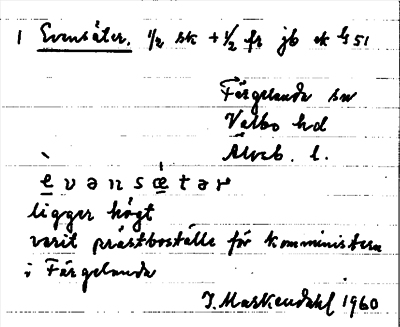 1 Evensäter. 1/2 sk + 1/2 fr jb ek 451
Färgelanda sn
Valbo hd
Älvsb. l.
èvənsǽtər
ligger högt
varit prästboställe för komministern
i Färgelanda